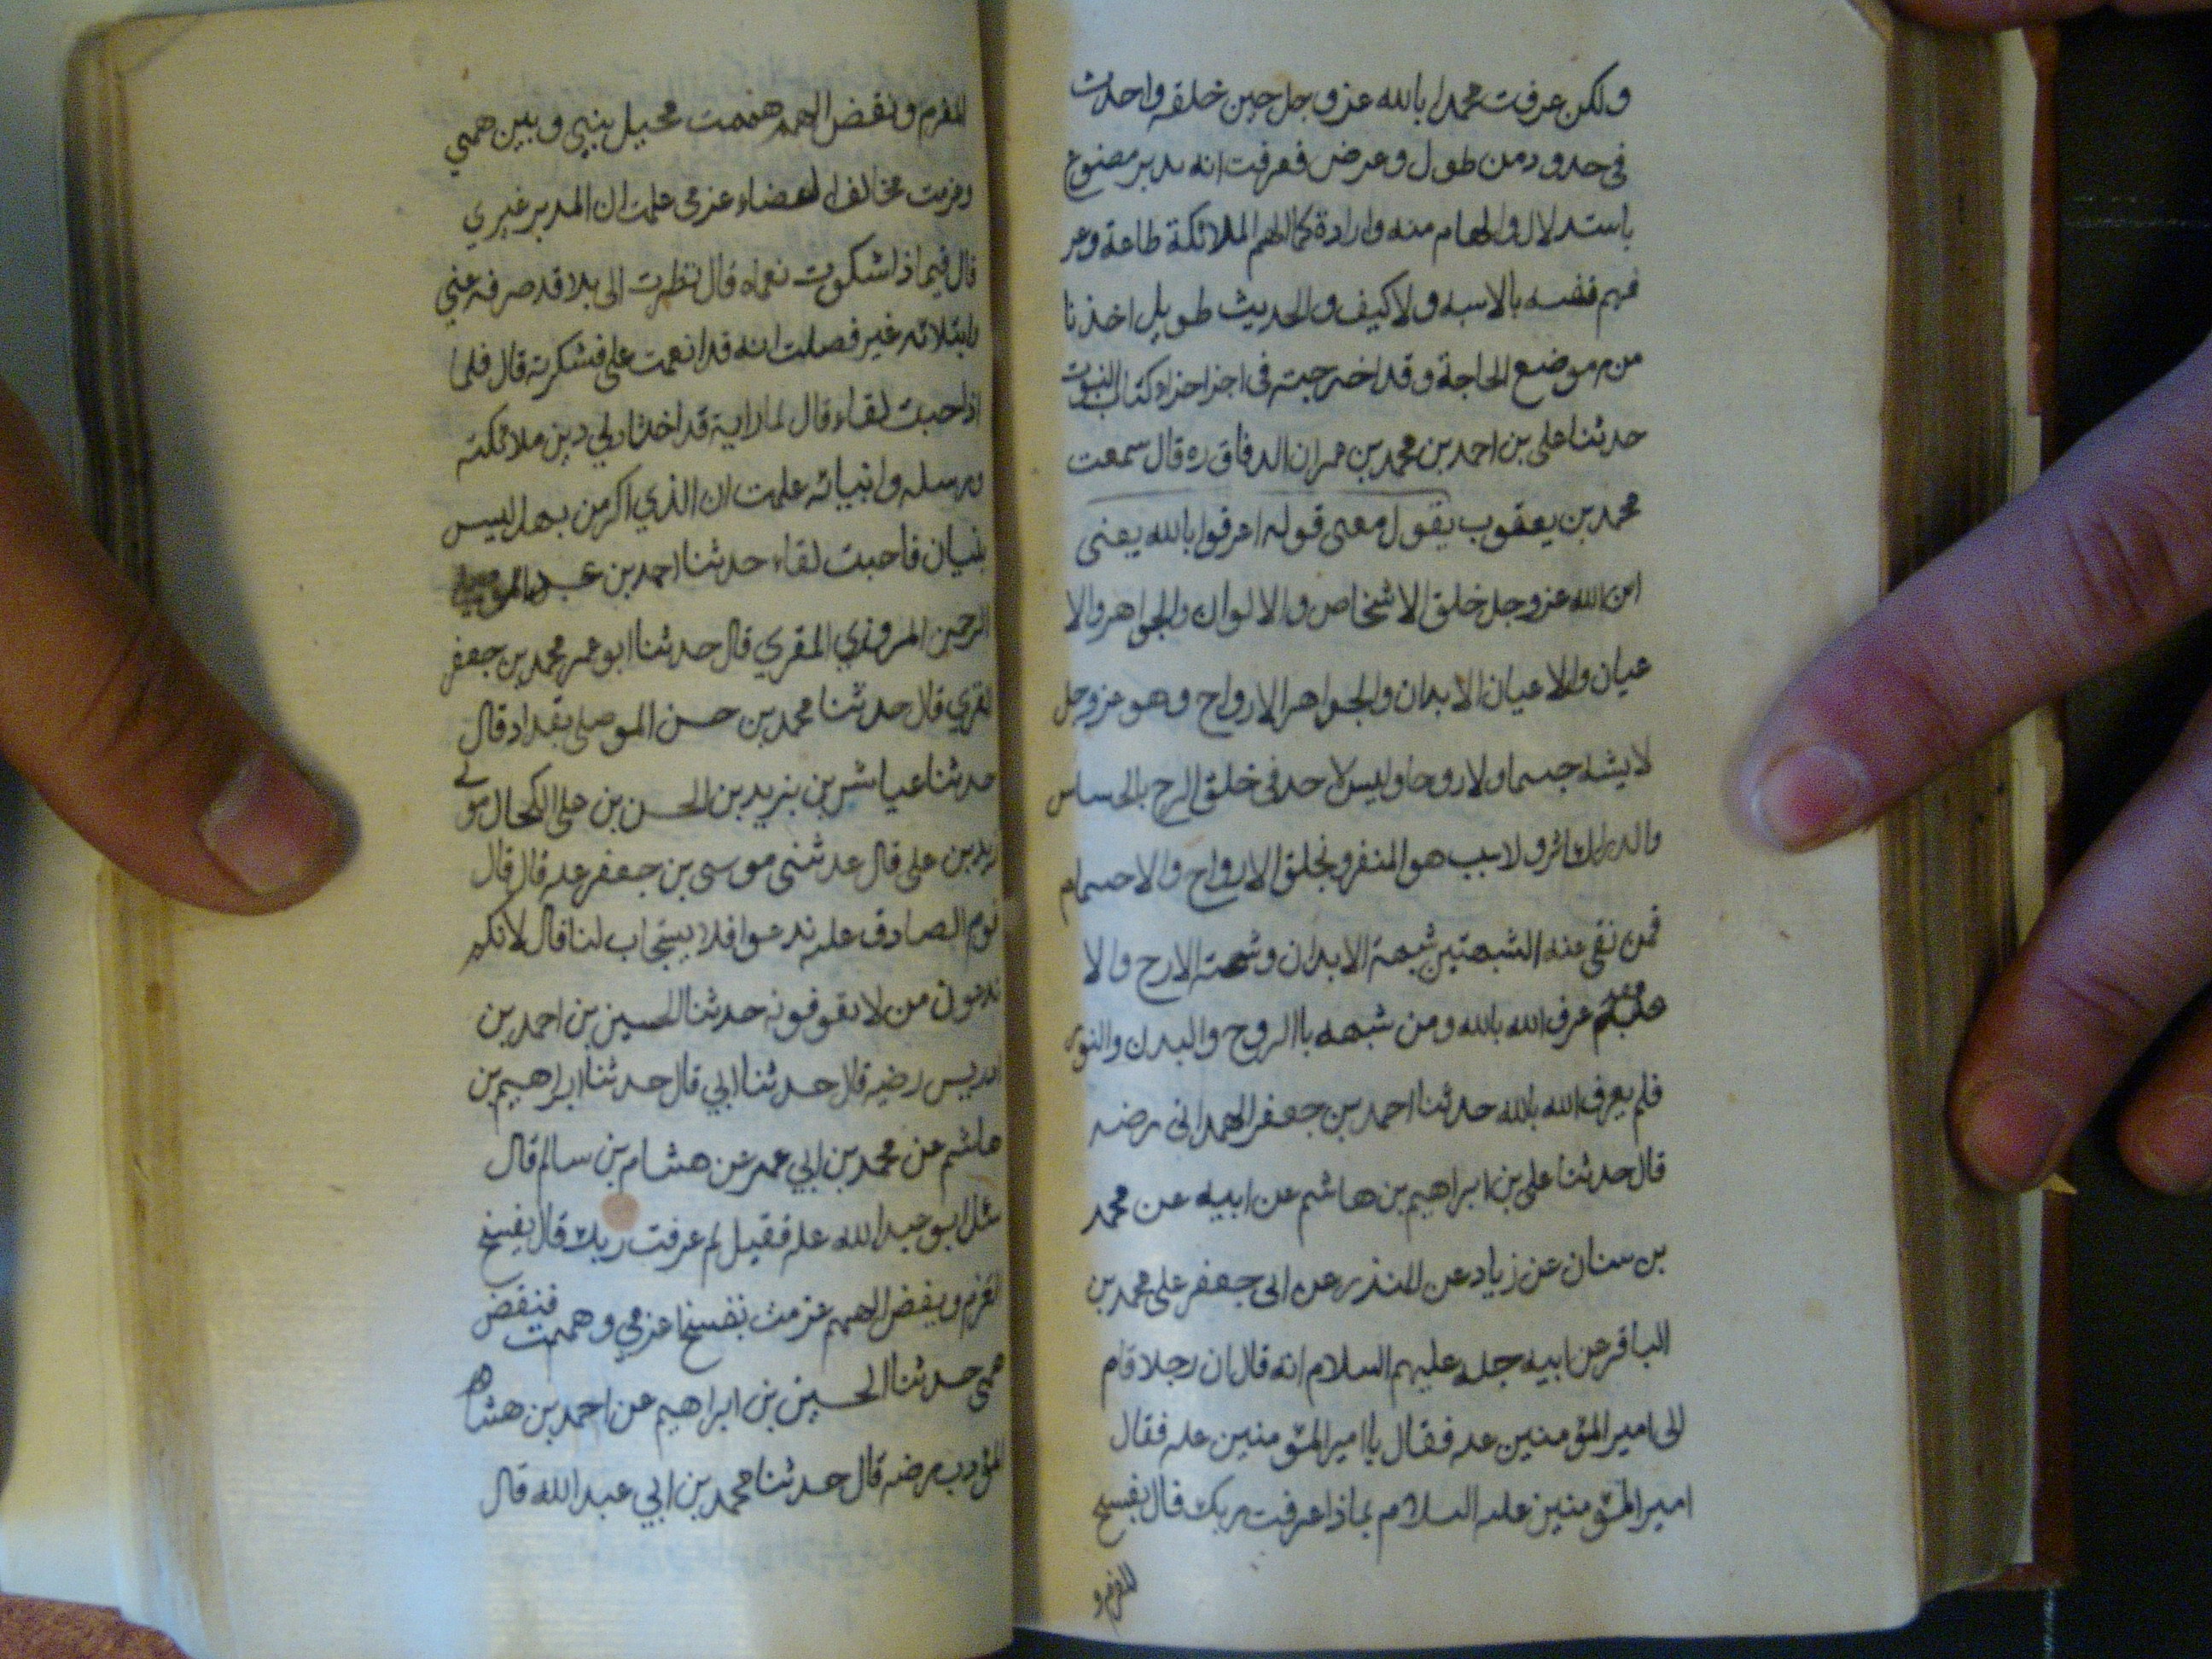 ولكن عرفت محمدا بالله عز و جل حين خلقه واحدث
فى حدود من طول وعرض فعرفت انه مدبر مصنوع
باستدلال والهام منه وارادة كما الهم الملائكة طاعة وعر
فهم نفسه بلا شبه ولا كيف والحديث طويل اخذنا
منه موضع الحاجة وقد اخرجته فى اجزا كتاب النبوت
حدثنا على بن احمد بن محمد بن عمران الدقاق ره قال سمعت
محمد بن يعقوب يقول معنى قوله اعرفوا بالله يعنى
ان الله عز وجل خلق الاشخاص والالوان والجواهر والا
عيان والاعيان الابدان والجواهر الارواح وهو عز وجل
لايشبه جسما ولا روحا وليس لاحد فى خلق الرح بالحساس
والدراك اثر ولا سبب هو المنفرد بخلق الارواح والاجسام
فمن نفى عنه الشبهتين شبهة الابدان وشبهة الارح والا
فقد عرف الله بالله ومن شبهه باالروح والبدن والنور
فلم يعرف الله بالله حدثنا احمد بن جعفر الهمدانى رضه
قال حدثنا على بن ابراهيم بن هاشم عن ابيه عن محمد
بن سنان عن زياد عن المنذر عن ابى جعفر على محمد بن
الباقر عن ابيه جده عليهم السلام انه قال ان رجلا قام
الى امير المؤمنين عه فقال ياامير المؤمنين عله فقال
امير المؤمنين عليه السلام بماذا عرفت ربك قال بفسخ
العزم و
العزم ونقض الهم هممت فحيل بينى وبين همى
وعزمت فخالف القضاء عزمى علمت ان المدبر غيرى
قال فبماذا شكرت نعماه قال نظرت الى بلا قد صرفه عنى
وابتلا به غيرى فعلمت انه قد انعمت على فشكرته قال فلما
اذا حبت لقاء قال لما رايته قد اختار لي دين ملائكته
ورسله وانبيائه علمت ان الذي اكرمن بهذا ليس
ينسان فاحبت لقاء حدثنا احمد بن عبد
الرحمن المروزي المقري قال حدثنا ابو عمر محمد بن جعفر
المقري قال حدثنا محمد بن حسن الموصلى بغداد قال
حدثنا عياش بن يزيد بن الحسن بن على الكحال مولى
زيد بن على قال حدثنى موسى بن جعفر عه قال قال
قوم الصادق عله ندعوا فلا يستجاب لنا قال لانكم
تدعون من لا تعرفونه حدثنا الحسين بن احمد بن
ادريس رضيه قال حدثنا ابي قال حدثنا ابراهيم بن
هاشم عن محمد بن ابي عمير عن هشام بن سالم قال
سئل ابو عبد الله عله فقيل لم عرفت ربك قال بفسخ
العزم ونقض الهم عزمت نفسخا عزمي وهممت فنقض
همى حدثنا الحسين بن ابراهيم عن احمد بن هشام
المؤدب رضه قال حدثنا محمد بن ابي عبد الله قال